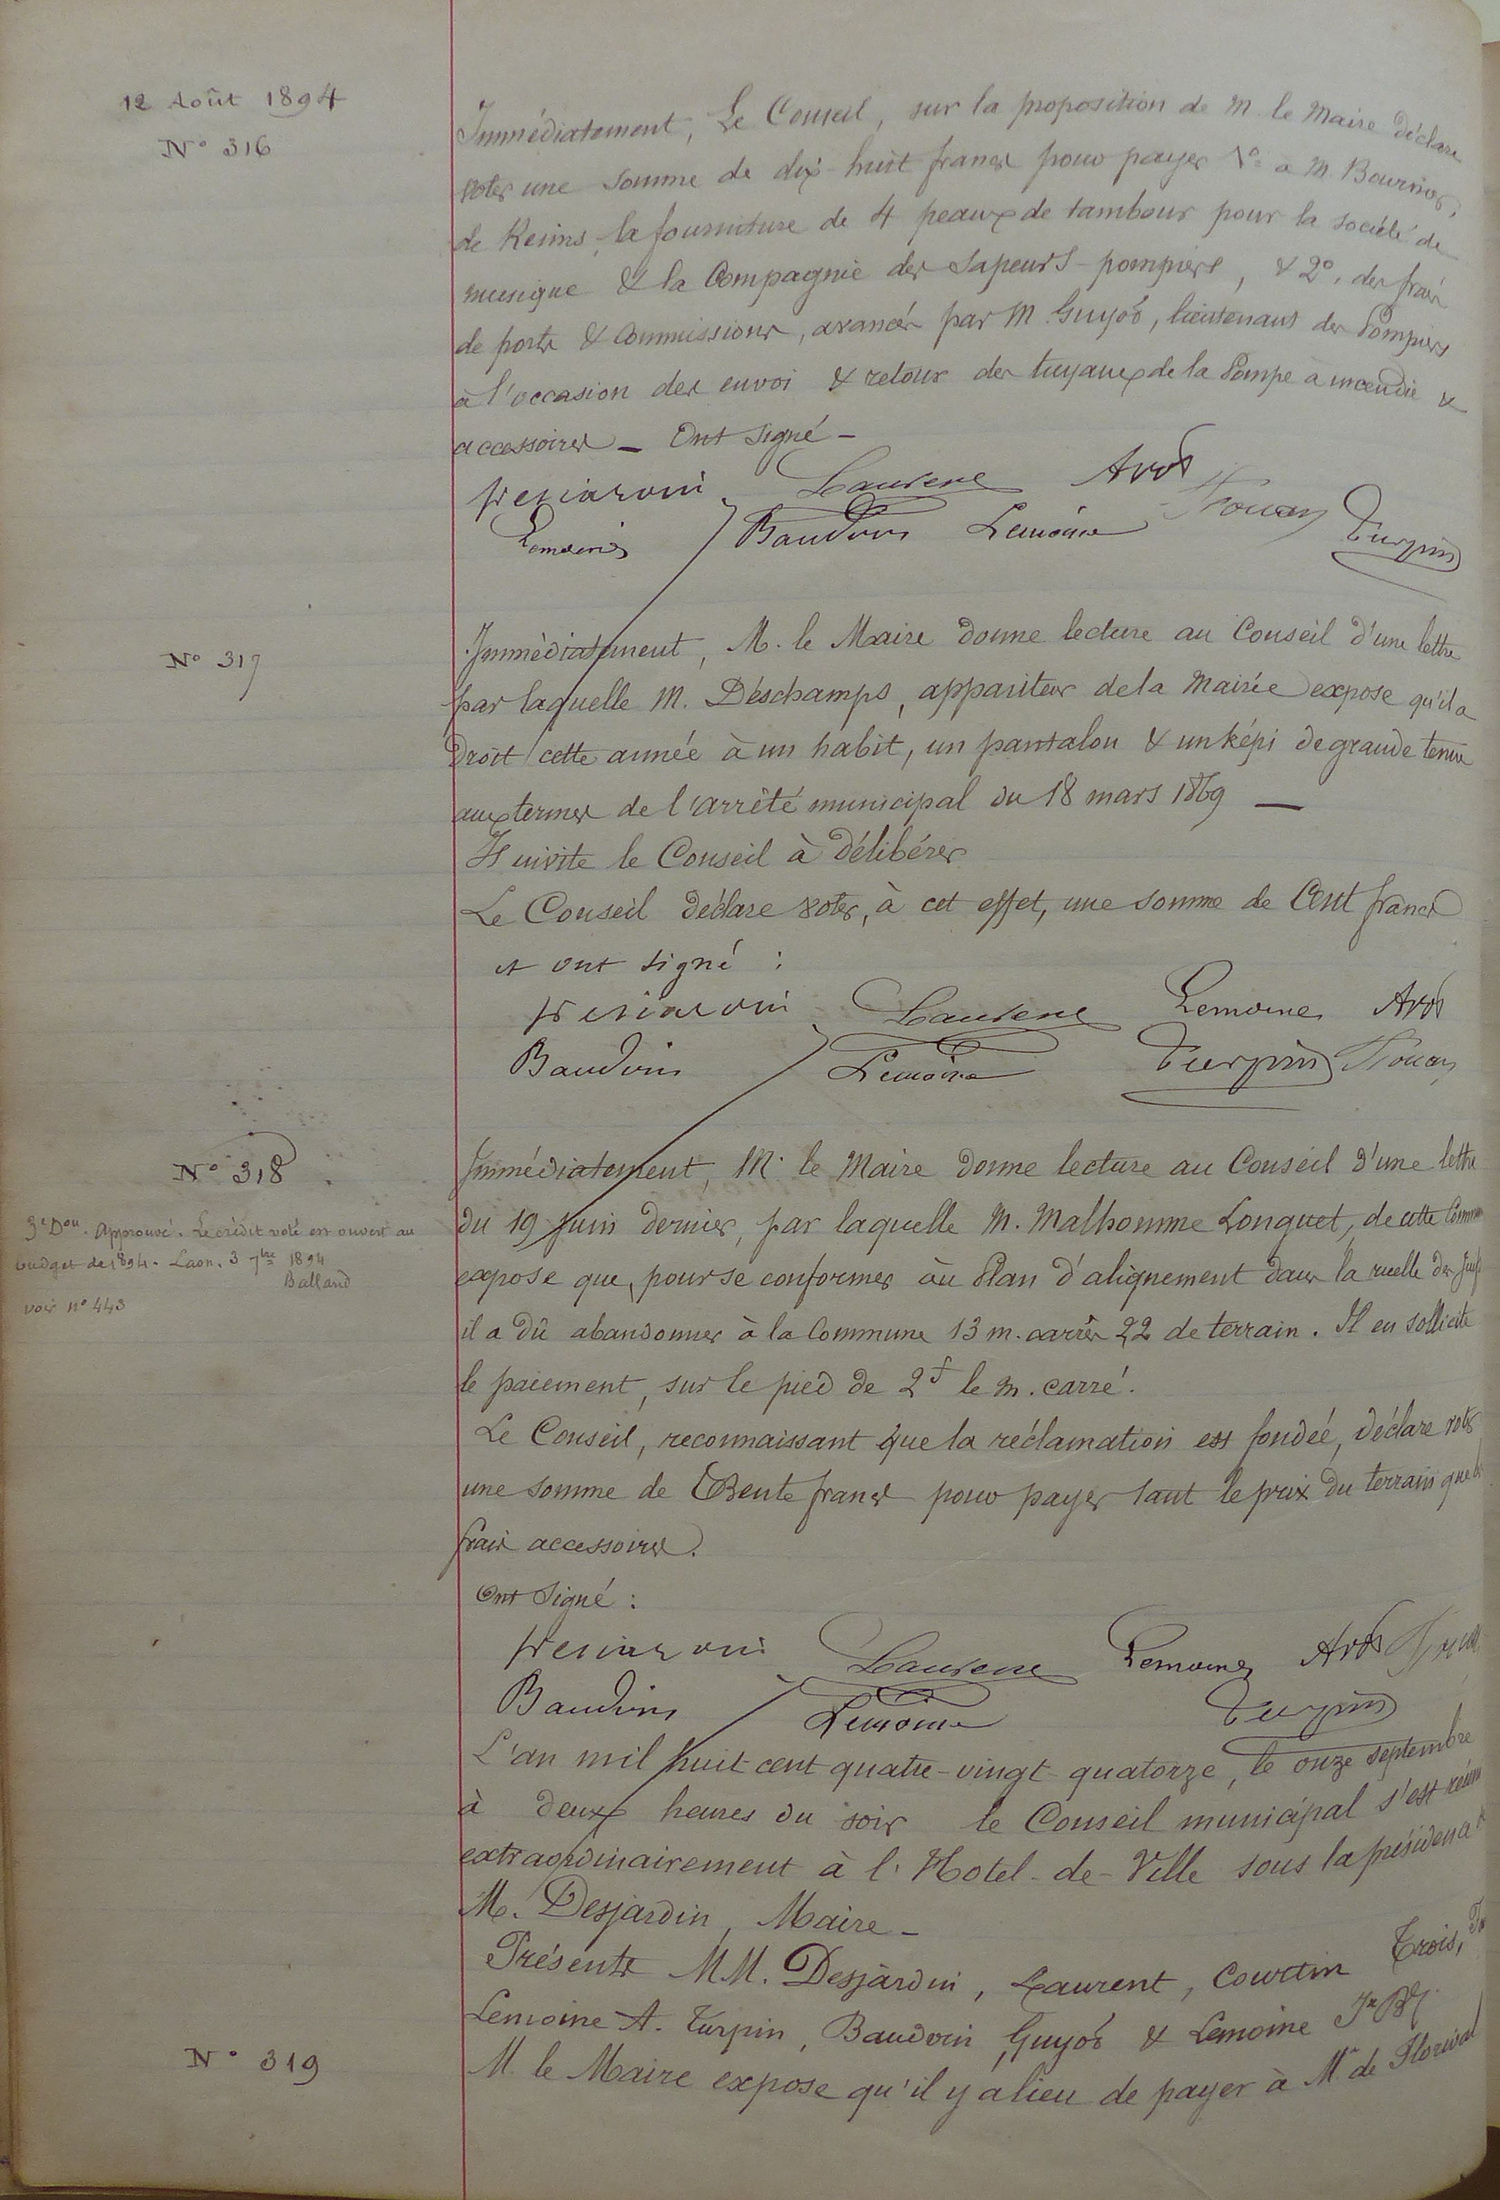 12 Août 1894
N° 316
Immédiatement, Le Conseil, sur la proposition de M. le Maire déclare
voter une somme de dix-huit francs pour payer 1° à M.
de Reims, la fourniture de 4 peaux de tambour pour la société de
musique & la Compagnie des Sapeurs-pompiers, & 2°, des frais
de ports & commissions, avancés par M. Guyot, lieutenant des Pompiers
à l'occasion des envoi & retour des tuyaux de la Pompe à incendie &
accessoires _ Ont signé _
Laurent
Lemoine Baudoin Lemoine Turpin
N° 317
Immédiatement, M. le Maire donne lecture au Conseil d'une lettre
par laquelle M. Deschamps, appariteur de la Mairie expose qu'il a
droit cette année à un habit, un pantalon & un képi de grande tenue
aux termes de l'arrêté municipal du 18 mars 1869 _
Il invite le Conseil à délibérer
Le Conseil déclare voter, à cet effet, une somme de Cent francs
et ont signé :
Laurent Lemoine
Baudoin Lemoine Turpin
N° 318
3e Don. Approuvé. Le crédit voté est ouvert au
budget de 1894. Laon, 3 7bre 1894
Balland
voir n° 443
Immédiatement, M. le Maire donne lecture au Conseil d'une lettre
du 19 Juin dernier, par laquelle M. Malhomme Longuet, de cette Commune
expose que, pour se conformer au Plan d'alignement dans la ruelle des
il a dû abandonner à la Commune 13 m. carrés 22 de terrain. Il en sollicite
le paiement, sur le pied de 2f le m. carré.
Le Conseil, reconnaissant que la réclamation est fondée, déclare voter
une somme de Trente francs pour payer tant le prix du terrain que les
frais accessoires.
Ont signé :
Laurent Lemoine
Baudoin Lemoine Turpin
L'an mil huit cent quatre-vingt-quatorze, le onze septembre
à deux heures du soir le Conseil municipal s'est réuni
extraordinairement à l'Hotel-de-Ville sous la présidence
M. Desjardin, Maire _
Présents MM. Desjardin, Laurent, Courtin Trois,
Lemoine A. Turpin, Baudoin, Guyot & Lemoine
N° 319
M. le Maire expose qu'il y a lieu de payer à Mr de Florival